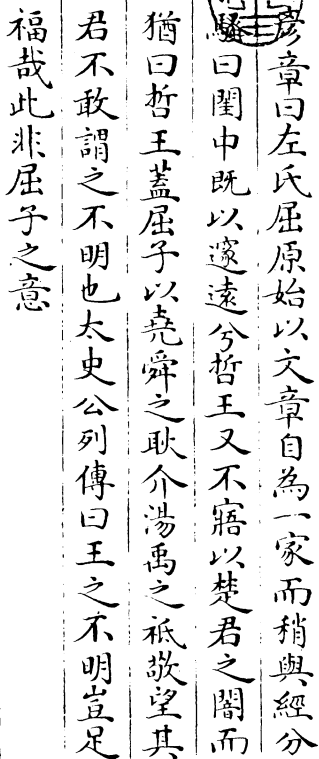 彦章曰左氏屈原始以文章自為一家而稍與經分
騷曰閨中既以邃遠兮哲王又不寤以楚君之闇而
猶曰哲王蓋屈子以堯舜之耿介湯禹之祗敬望其
君不敢謂之不明也太史公列傳曰王之不明豈足
福哉此非屈子之意